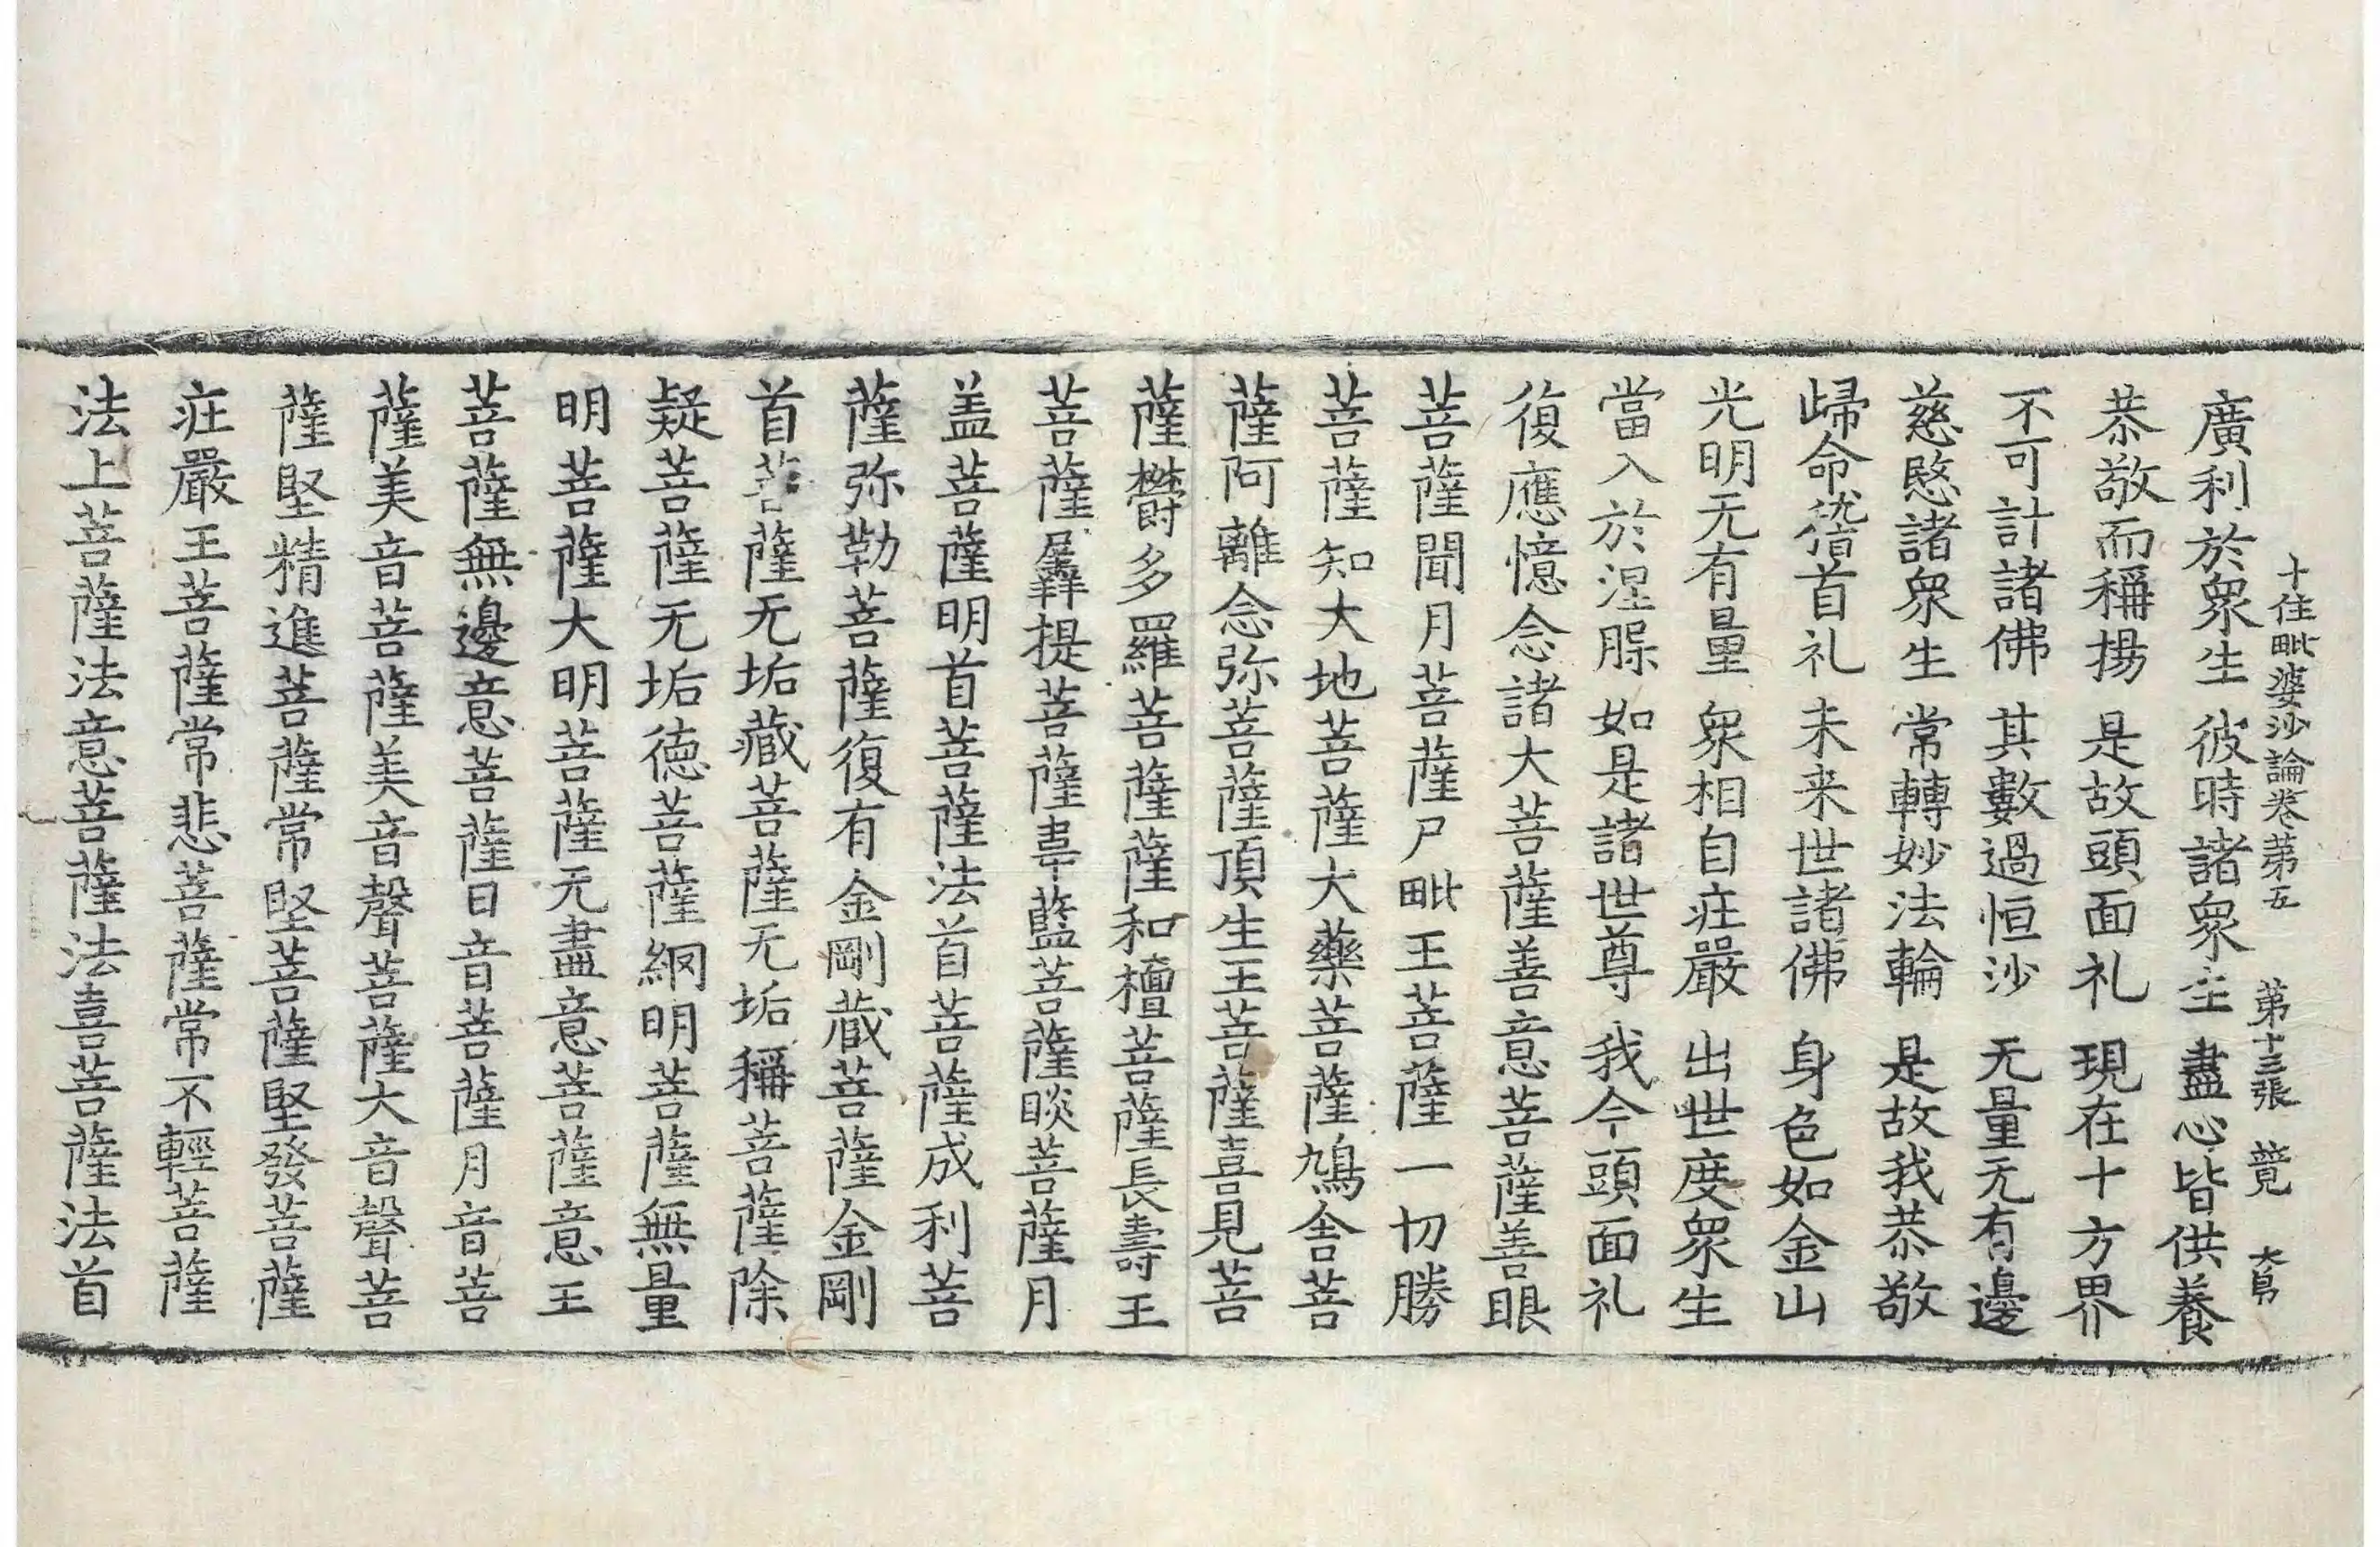 十住毗婆沙論卷第五　第十三張　覽　大易
廣利於衆生　彼時諸衆生　盡心皆供養
恭敬而稱揚　是故頭面礼　現在十方界
不可計諸佛　其數過恒沙　无量无有邊
慈愍諸衆生　常轉妙法輪　是故我恭敬
歸命稽首礼　未来世諸佛　身色如金山
光明无有量　衆相自莊嚴　出世度衆生
當入於涅脲　如是諸世尊　我今頭面礼
復應憶念諸大菩薩善意菩薩善眼
菩薩聞月菩薩尸毗王菩薩一切勝
菩薩知大地菩薩大藥菩薩鳩舍菩
薩阿離念弥菩薩頂生王菩薩喜見菩
薩欝多羅菩薩薩和檀菩薩長壽王
菩薩羼提菩薩韋藍菩薩睒菩薩月
盖菩薩明首菩薩法首菩薩成利菩
薩弥勒菩薩復有金剛藏菩薩金剛
首菩薩无垢藏菩薩无垢稱菩薩除
疑菩薩无垢德菩薩網明菩薩無量
明菩薩大明菩薩无盡意菩薩意王
菩薩無邊意菩薩日音菩薩月音菩
薩美音菩薩美音聲菩薩大音聲菩
薩堅精進菩薩常堅菩薩堅發菩薩
莊嚴王菩薩常悲菩薩常不輕菩薩
法上菩薩法意菩薩法喜菩薩法首